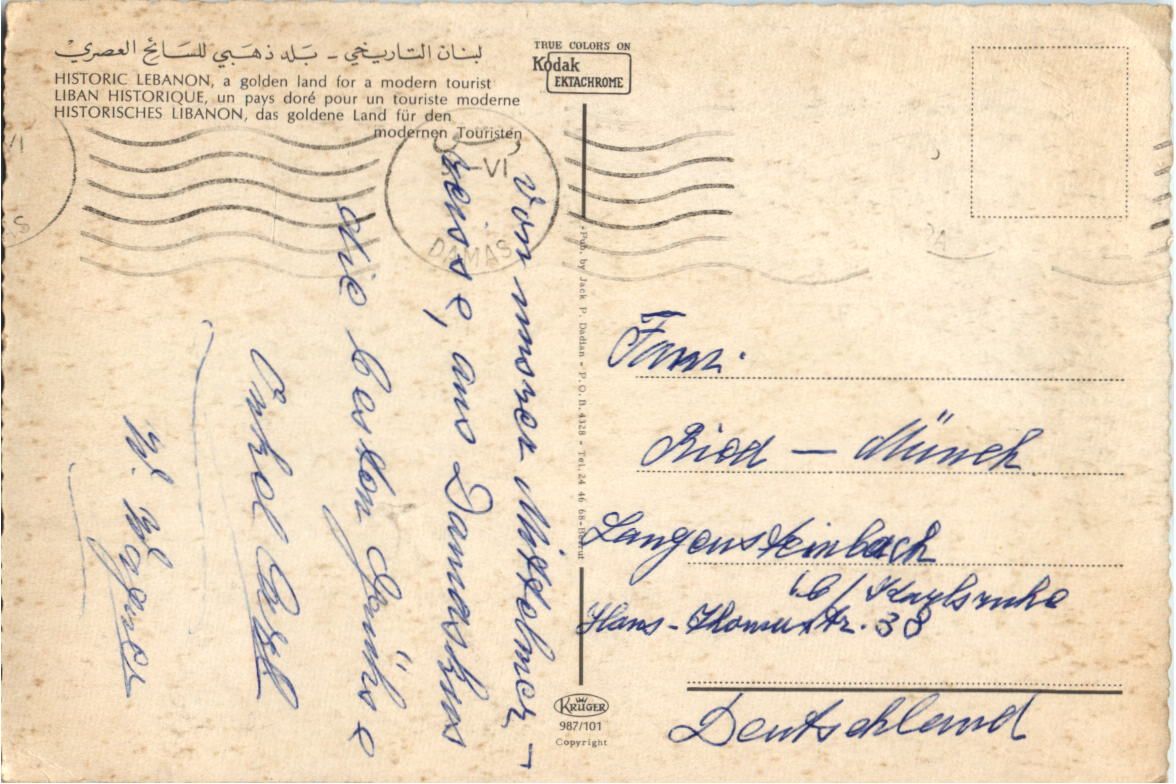 لبنان التاريخي - بلد ذهبي للسائح العصري
HISTORIC LEBANON, a golden land for a modern tourist
LIBAN HISTORIQUE, un pays doré pour un touriste moderne
HISTORISCHES LIBANON, das goldene Land für den
modernen Touristen
TRUE COLORS ON
Kodak
EKTACHROME
VI
DAMAS
Von unsrer Mittelmeer-
reise, aus Damaskus
die besten Grüße
Onkel Karl
W. Wagner
Pub. by Jack P. Dadian - P.O.B. 4328 - Tel. 24 46 68 - Beirut
Fam.
Ried - Münch
Langensteinbach
b/ Karlsruhe
Hans-Thomastr. 38
Deutschland
KRÜGER
987/101
Copyright